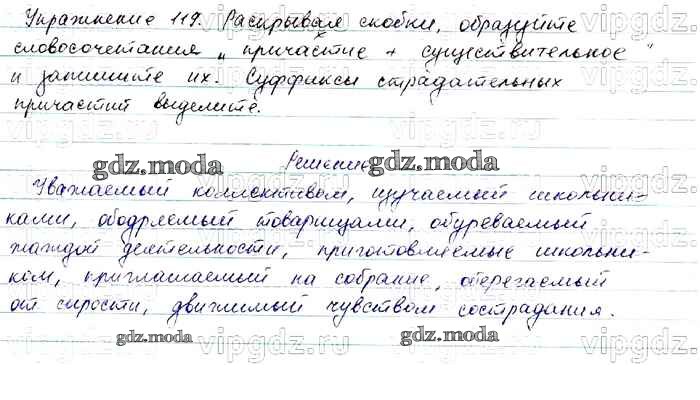 Упражнение 119. Раскрывая скобки, образуйте
словосочетания „ причастие + существительное "
и запишите их. Суффиксы страдательных
причастий выделите.
gdz.moda Решение gdz.moda
Уважаемый коллективом, изучаемый школьни-
ками, ободряемый товарищами, обуреваемый
жаждой деятельности, приготовляемые школьни-
ком, приглашаемый на собрание, оберегаемый
от сырости, движимый чувством сострадания.
gdz.moda gdz.moda
vipgdz.ru